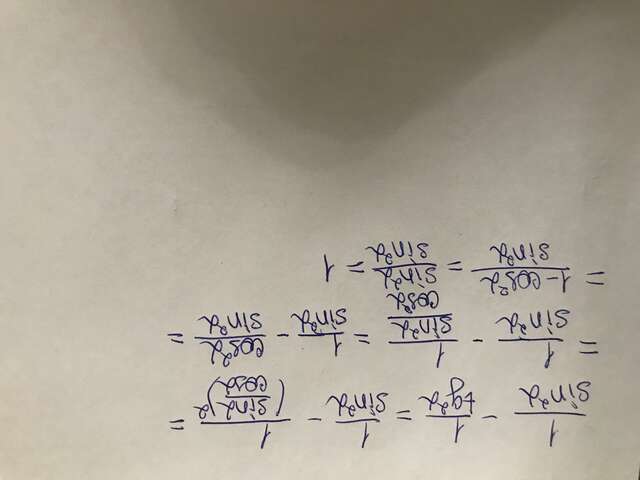 1/sin²α − 1/tg²α = 1/sin²α − 1/(sinα/cosα)² =
= 1/sin²α − 1/(sin²α/cos²α) = 1/sin²α − cos²α/sin²α =
= (1−cos²α)/sin²α = sin²α/sin²α = 1